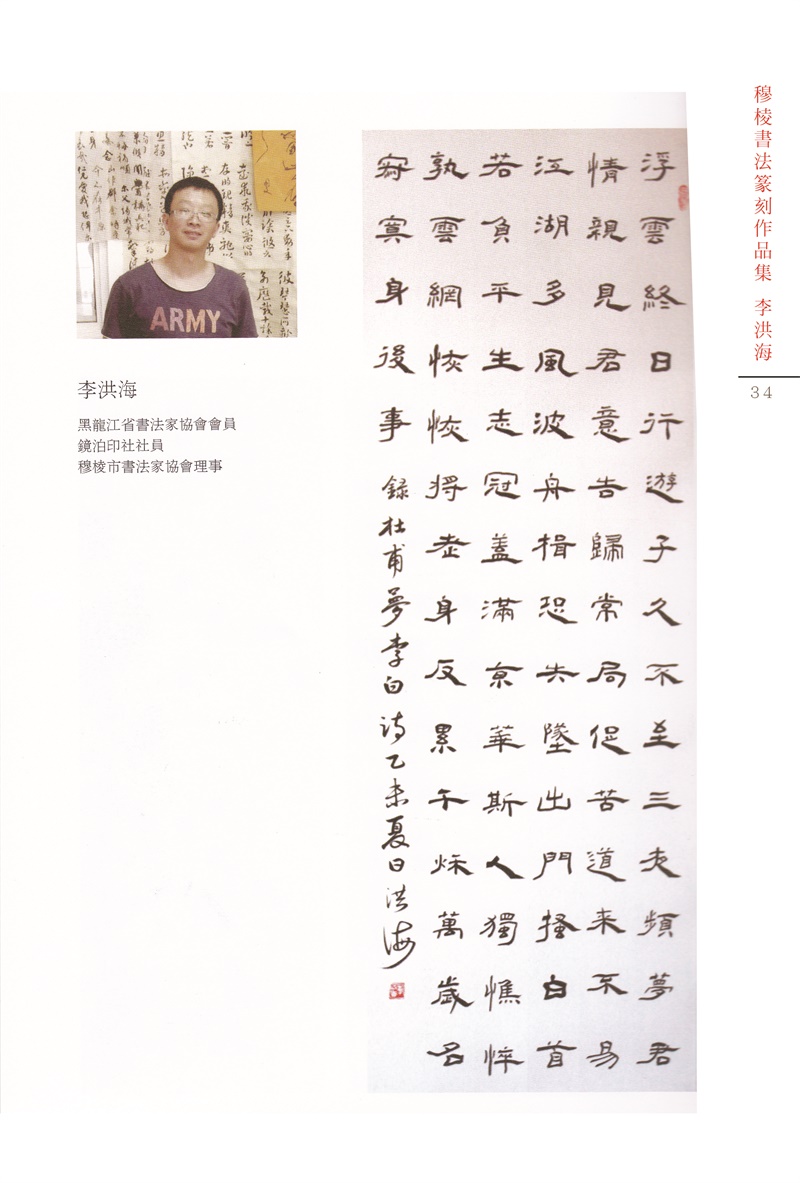 穆棱書法篆刻作品集 李洪海
34
李洪海
黑龍江省書法家協會會員
鏡泊印社社員
穆棱市書法家協會理事
ARMY
浮雲終日行遊子久不至三夜頻夢君
情親見君意告歸常局促苦道来不易
江湖多風波舟楫恐失墜出門搔白首
若負平生志冠蓋滿京華斯人獨憔悴
孰雲網恢恢將老身反累千秋萬歲名
寂寞身後事 錄杜甫夢李白詩乙未夏日洪海